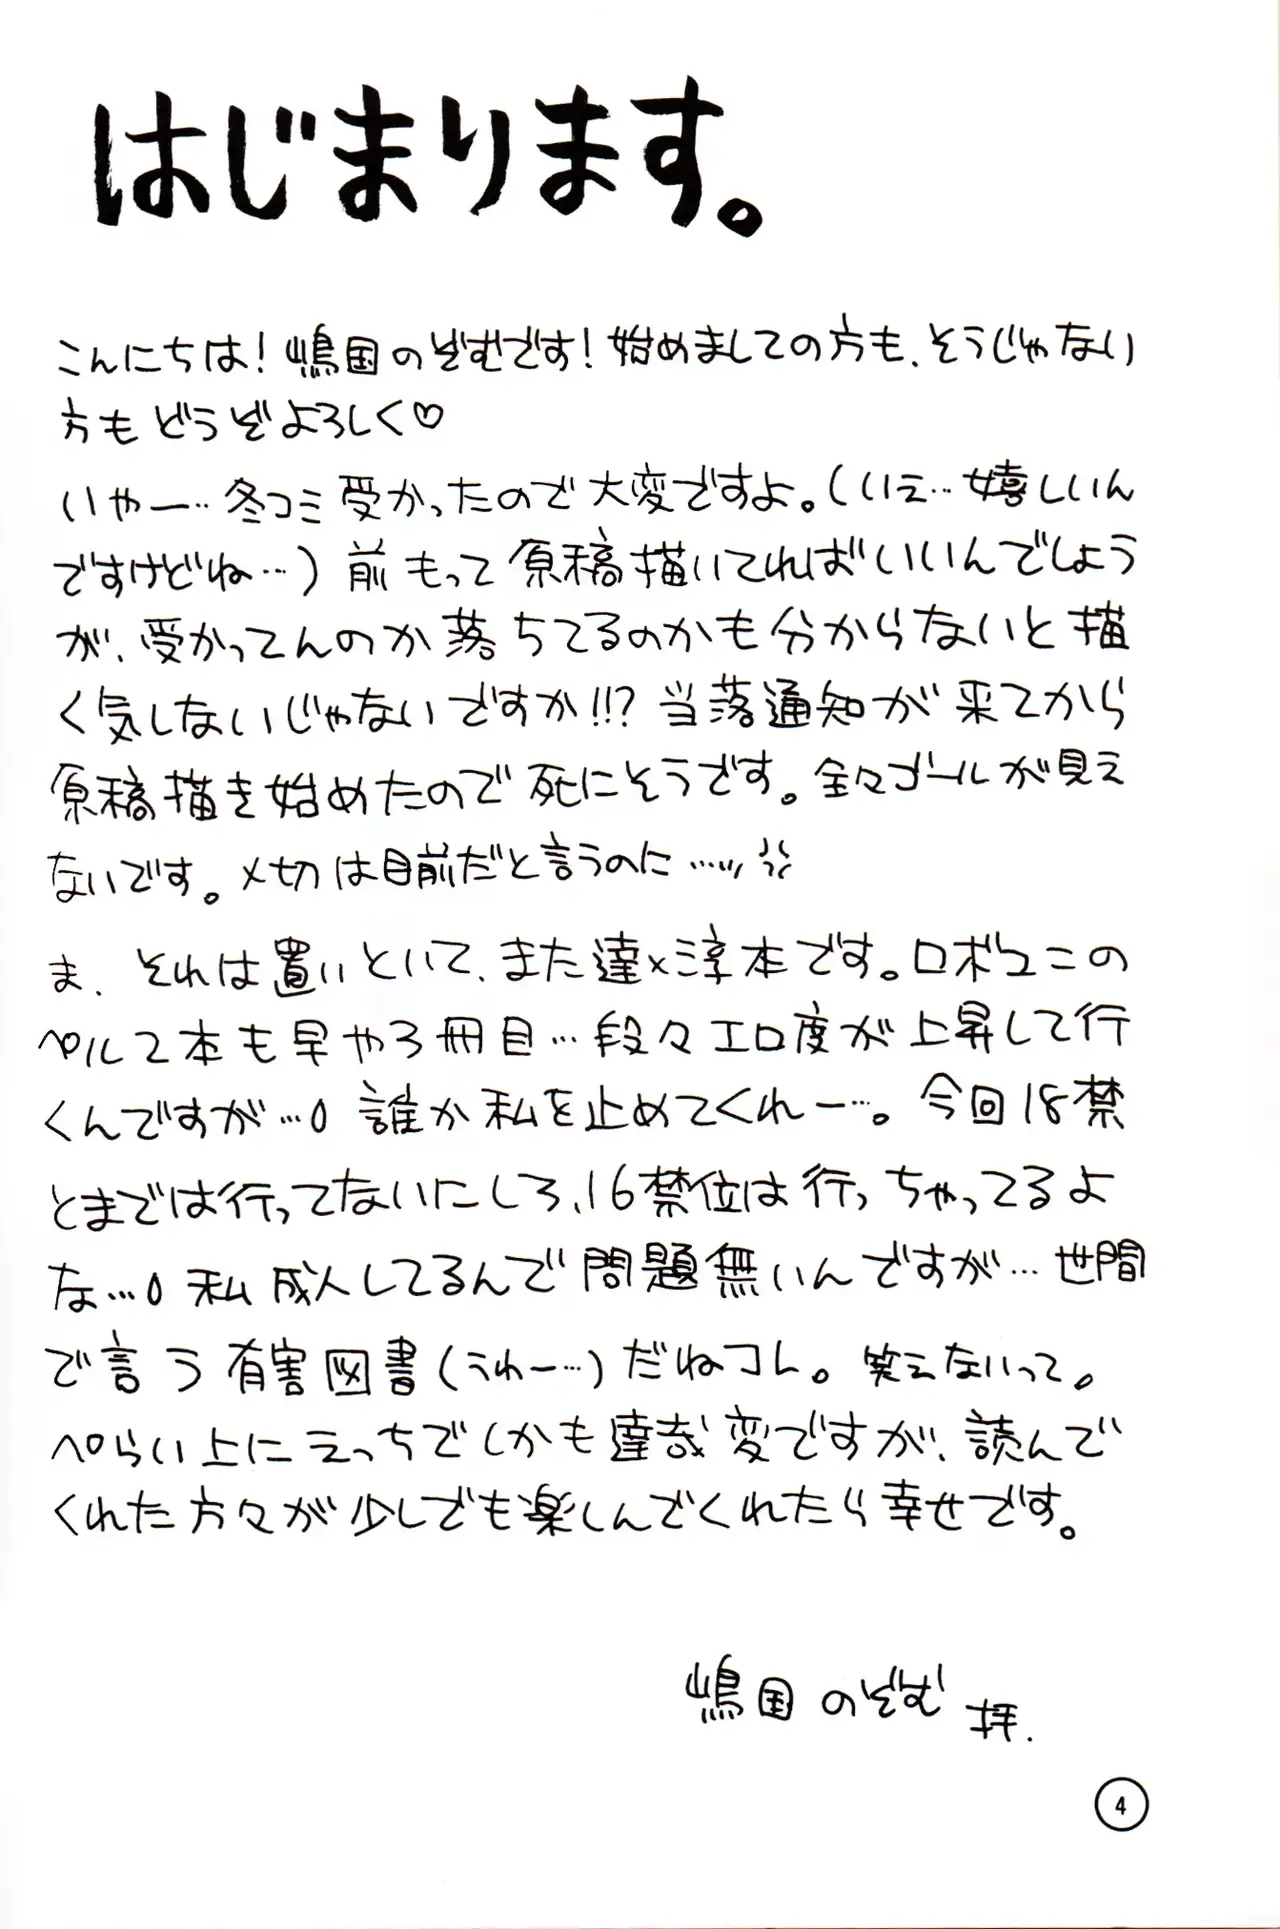 はじまります。
こんにちは！嶋国のぞむです！始めましての方も、そうじゃない
方もどうぞよろしく♡
いやー…冬コミ受かったので大変ですよ。（いえ…嬉しいん
ですけどね…）前もって原稿描いてればいいんでしょう
が、受かってんのか落ちてるのかも分からないと描
く気しないじゃないですか!!?当落通知が来てから
原稿描き始めたので死にそうです。全々ゴールが見え
ないです。〆切は目前だと言うのに……
ま、それは置いといて、また達×淳本です。ロボユニの
ペルソ本も早や3冊目…段々エロ度が上昇して行
くんですが…誰か私を止めてくれー…。今回18禁
とまでは行ってないにしろ、16禁位は行っちゃってるよ
な…私成人してるんで問題無いんですが…世間
で言う有害図書（うわー…）だねコレ。笑えないって。
ぺらい上にえっちでしかも達哉変ですが、読んで
くれた方々が少しでも楽しんでくれたら幸せです。
嶋国のぞむ 拝.
4